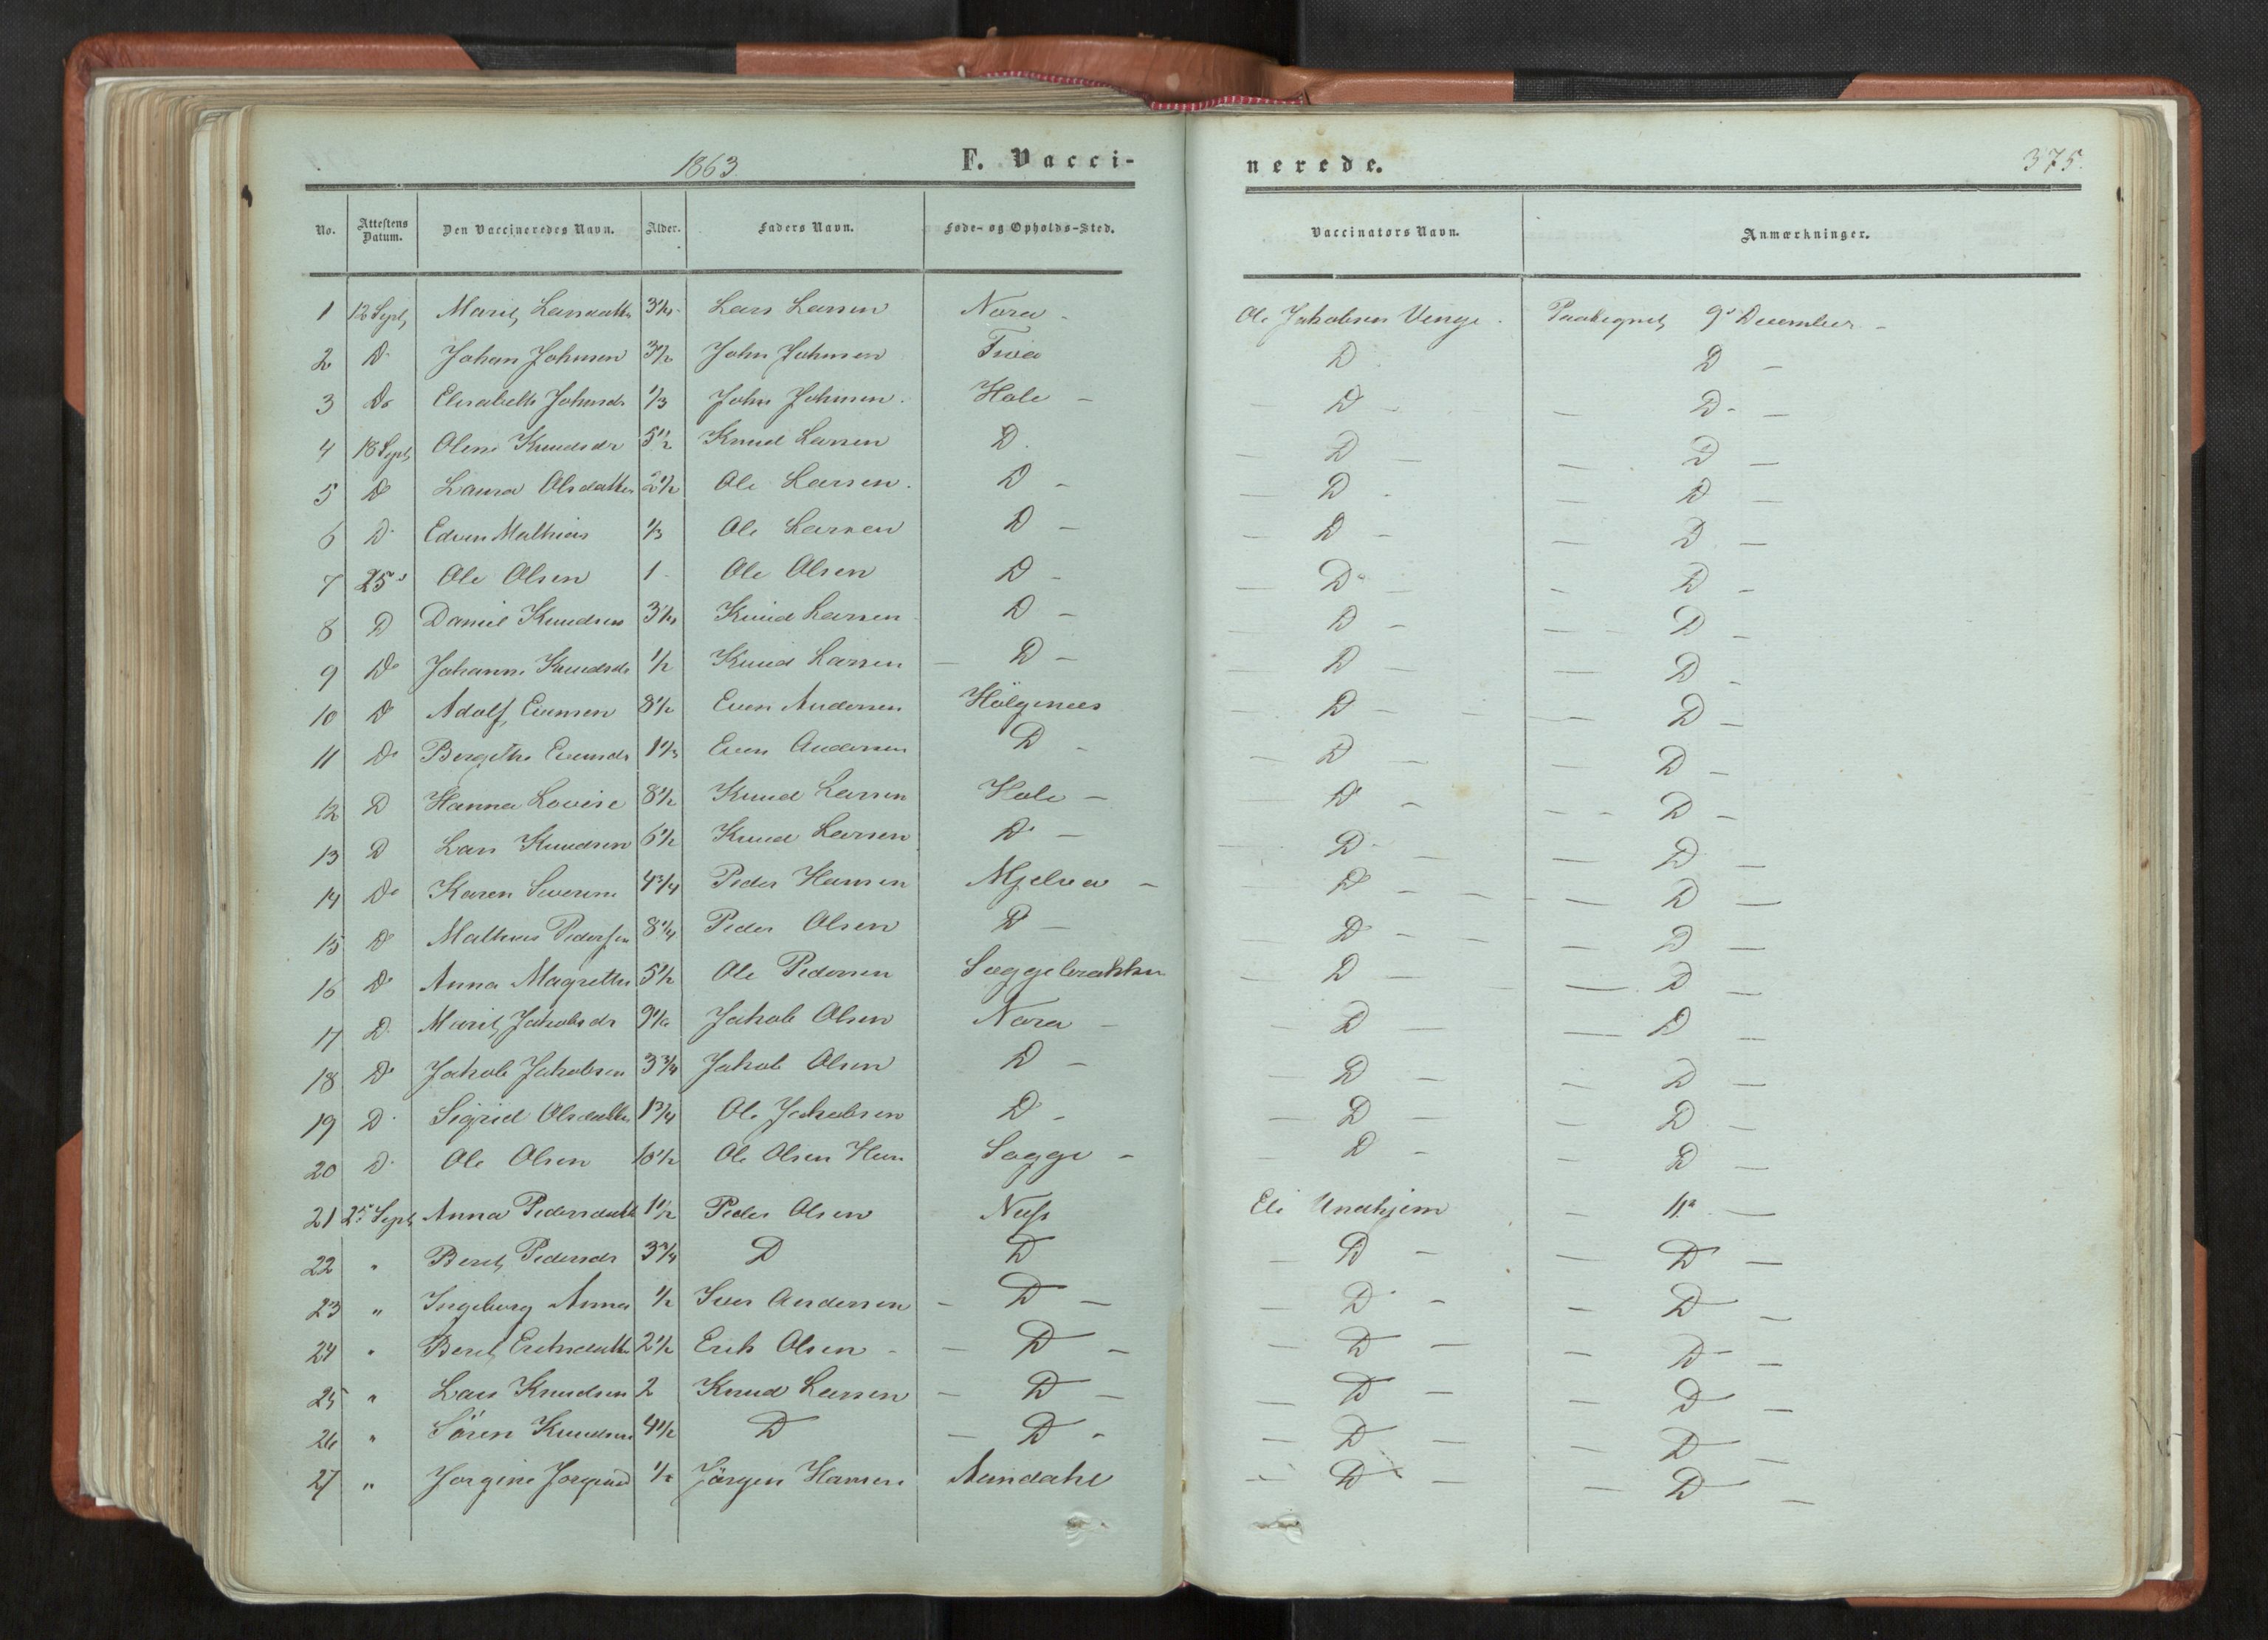 1863.
F. Vacci-
nerede.
375.
No. Attestens Datum. Den Vaccineredes Navn. Alder. Faders Navn. Føde- og Opholds-Sted. Vaccinators Navn. Anmærkninger.
1 12 Sept Marit Larsdatter 3 Lars Larsen Nora - Ole Jakobsen Venge - Paategnet 9de December -
2 D Johan Johnsen 3 1/2 John Johnsen D D -
3 Do Elisabeth Johnsdr 1/3 John Johnsen. Hole - D - D -
4 18 Sept Oline Knudsdr 5 1/2 Knud Larsen D. D - D -
5 D Laura Olsdatter 2 1/2 Ole Larsen. D - D - D -
6 D Edvin Mathias 1/3 Ole Larsen D - D - D -
7 25de Ole Olsen 1 Ole Olsen D - Do - D -
8 D Daniel Knudsen 3 Knud Larsen D - D - D -
9 Do Johanne Knudsdr 1/2 Knud Larsen - D - D - D -
10 D Adolf Evensen 8 1/2 Even Andersen Hølgenes D - D -
11 Do Bergithe Evensdr 1 1/3 Even Andersen D - D - D -
12 D Hanna Lovise 8 1/2 Knud Larsen Hole - D - D -
13 D Lars Knudsen 6 1/2 Knud Larsen D - D - D -
14 Do Karen Severine 4 3/4 Peder Hansen Mjelva - D - D -
15 D Mathias Pedersen 8 1/4 Peder Olsen D - D - D -
16 D Anna Magrethe 5 1/2 Ole Pedersen Soggebrakken D - D -
17 D Marit Jakobsdr 9 Jakob Olsen Nora - D - D -
18 D Jakob Jakobsen 3 3/4 Jakob Olsen D - D - D -
19 D Sigrid Olsdatter 1 3/4 Ole Jakobsen D - D - D -
20 D Ole Olsen 10 1/2 Ole Olsen Sogge - D - D -
21 25 Sept Anna Pedersdatt 1 1/2 Peder Olsen Næss Eli Unahjem - 11te -
22 " Berit Pedersdr 3 3/4 D D D - D -
23 " Ingeborg Anna 1/2 Iver Andersen - D - D - D -
24 " Berit Eriksdatter 2 1/2 Erik Olsen - D - D - D -
25 " Lars Knudsen 2 Knud Larsen - D - D - D -
26 " Søren Knudsen 4 1/2 D - D - D - D -
27 " Jørgine 1/2 Jørgen Hansen D - D -